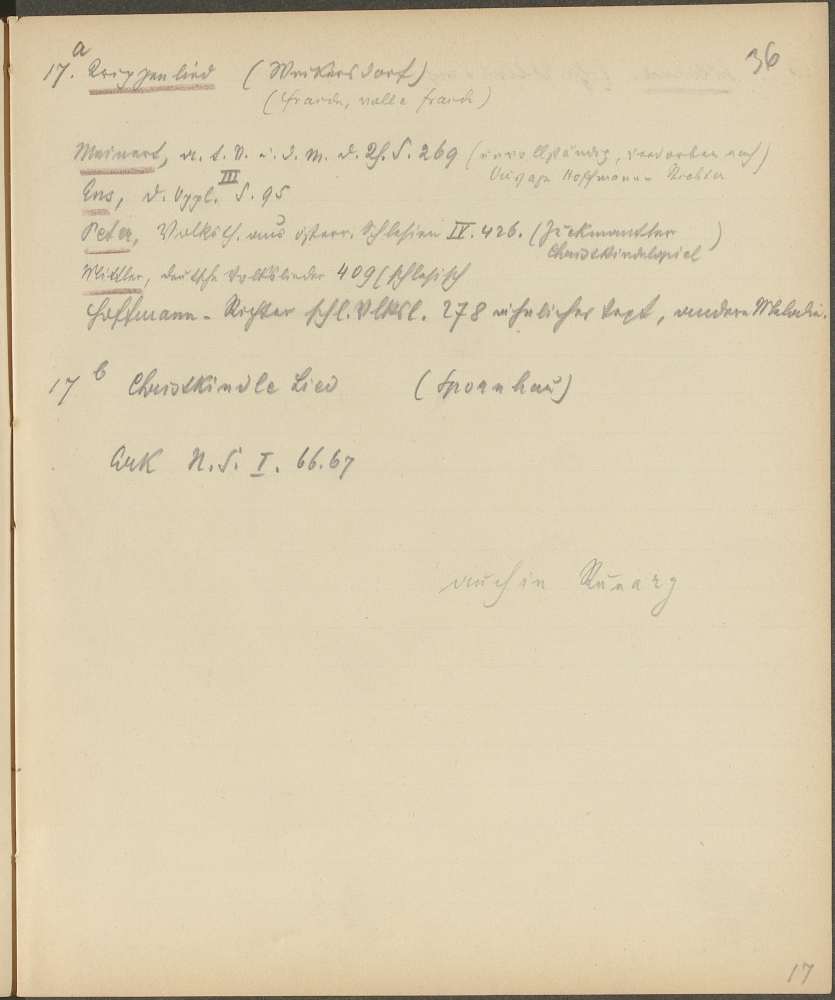 36
17.a Krippenlied (Weikersdorf)
(Freede, volle Freede)
Meinert, a. t. V. i. d. M. d. S. 269 (unvollständig, verdorben nach
Hoffmann Richter)
Ens, d. Oppl. III S. 95
Peter, Volksth. aus österr. Schlesien II. 426. (Zuckmantler
Christkindelspiel)
Mittler, deutsche Volkslieder 409 (schlesisch
Hoffmann-Richter schl. Vlksl. 278 ähnlicher Text, andere Melodie.
17b Christkindle Lied (Spornhau)
Erk N. S. I. 66.67
auch in Runarz
17